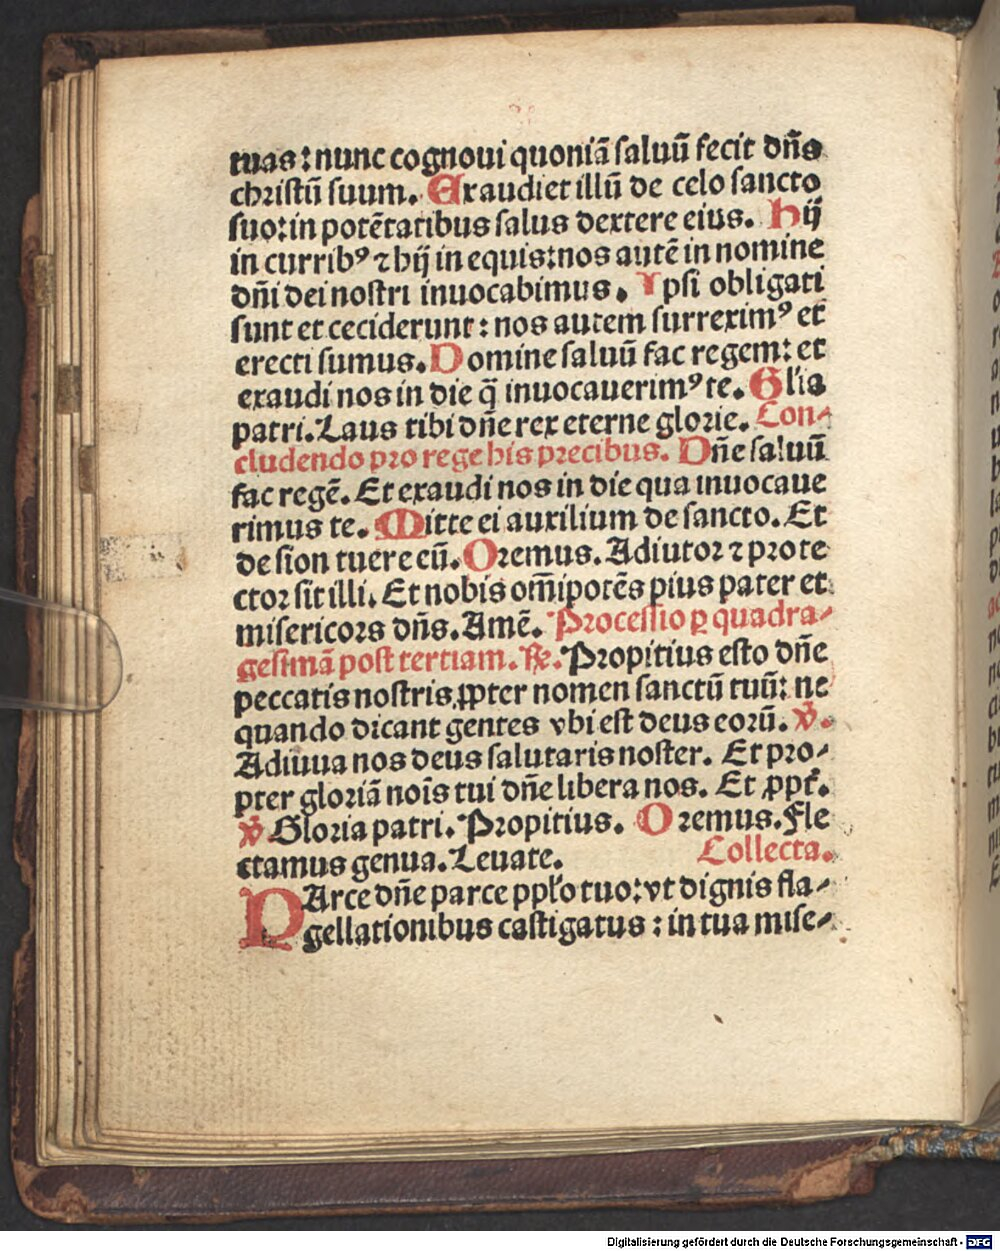 tuas: nunc cognoui quoniā saluū fecit dn̄s
christū suum. Exaudiet illū de celo sancto
suo: in potētatibus salus dextere eius. Hij
in curribꝰ ⁊ hij in equis: nos autē in nomine
dn̄i dei nostri inuocabimus. Ipsi obligati
sunt et ceciderunt: nos autem surreximꝰ et
erecti sumus. Domine saluū fac regem: et
exaudi nos in die q̄ inuocauerimꝰ te. Gl'ia
patri. Laus tibi dn̄e rex eterne glorie. Con-
cludendo pro rege his precibus. Dn̄e saluū
fac regē. Et exaudi nos in die qua inuocaue
rimus te. Mitte ei auxilium de sancto. Et
de sion tuere eū. Oremus. Adiutor ⁊ prote
ctor sit illi. Et nobis om̄ipotēs pius pater et
misericors dn̄s. Amē. Processio ꝑ quadra-
gesimā post tertiam. ℟. Propitius esto dn̄e
peccatis nostris ꝓpter nomen sanctū tuū: ne
quando dicant gentes vbi est deus eorū. ℣.
Adiuua nos deus salutaris noster. Et pro-
pter gloriā nōis tui dn̄e libera nos. Et ꝓpt̄.
℣ Gloria patri. Propitius. Oremus. Fle
ctamus genua. Leuate. Collecta.
PArce dn̄e parce ppl'o tuo: vt dignis fla-
gellationibus castigatus: in tua mise-
Digitalisierung gefördert durch die Deutsche Forschungsgemeinschaft - DFG